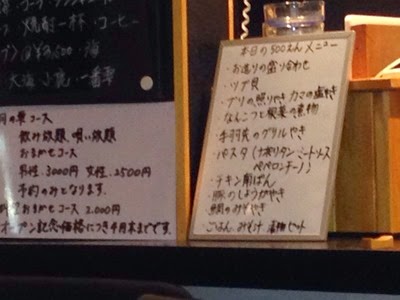 焼酎一杯 コーヒー
月の華コース
飲み放題 唄い放題
おまかせコース
男性 3000円 女性 2500円
予約のみとなります。
おまかせコース 2,000円
オープン記念価格につき4月末までです。
本日の500えんメニュー
・お造りの盛り合わせ
・ツブ貝
・ブリの照りやき カマの塩やき
・なんこつと根菜の煮物
・手羽先のグリルやき
・パスタ(ナポリタン ミートソース
ペペロンチーノ)
・チキン南ばん
・豚のしょうがやき
・鯛のみそやき
・ごはん、みそ汁 漬物セット